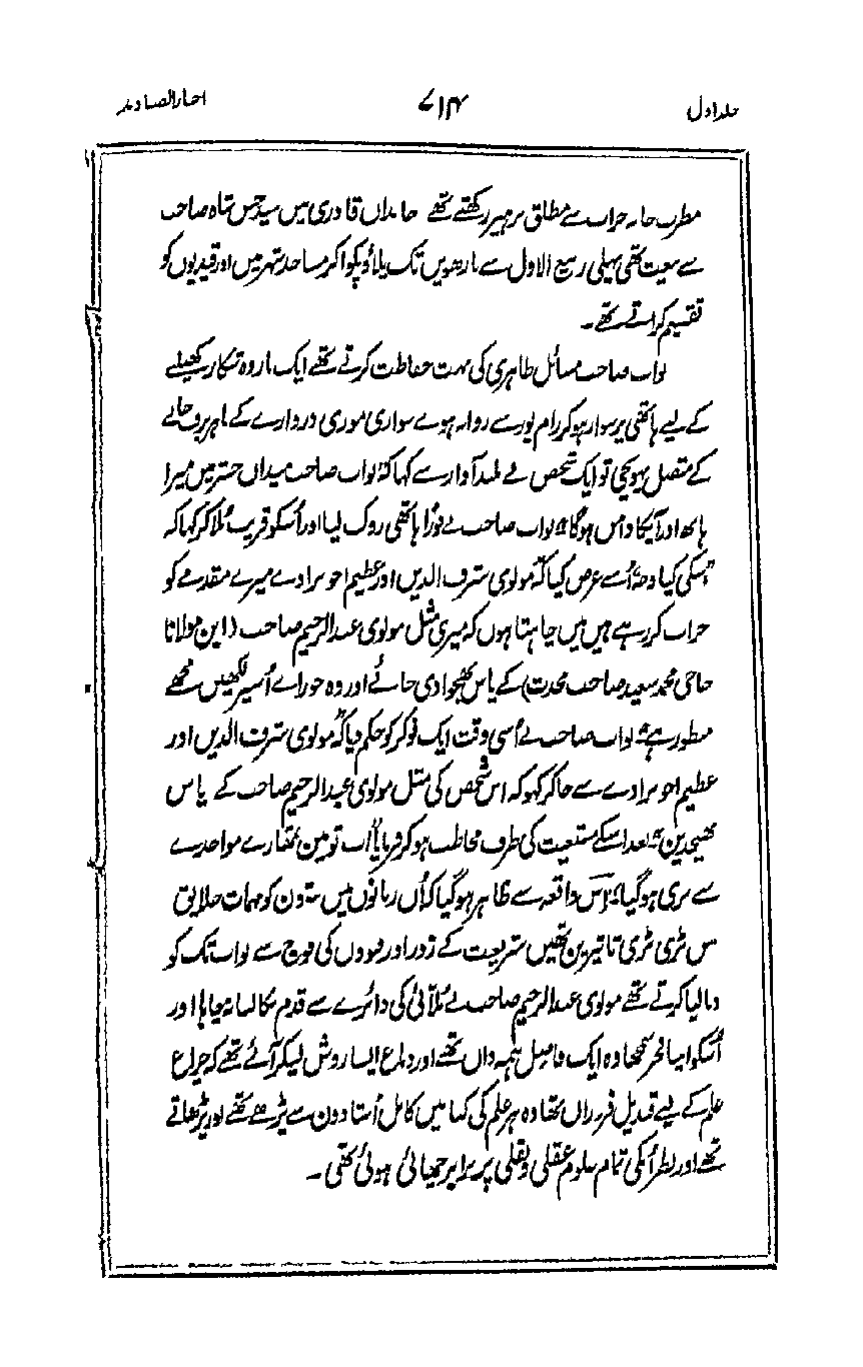 جلد اول ۷۱۴ اخبار الصنادید
مطرب خانہ خراب سے مطلق پرہیز رکھتے تھے خاندان قادری میں سید حسن شاہ صاحب
سے بیعت تھی پہلی ربیع الاول سے بارھویں تک پلاؤ پکوا کر مساجد شہر میں اور قیدیوں کو
تقسیم کراتے تھے۔
نواب صاحب مسائل ظاہری کی بہت حفاظت کرتے تھے ایک بار وہ شکار کھیلنے
کے لیے ہاتھی پر سوار ہو کر رام پور سے روانہ ہوے سواری موری دروازے کے باہر
کے متصل پہونچی تو ایک شخص نے بلند آواز سے کہا کہ نواب صاحب میدان حشر میں میرا
ہاتھ اور آپکا دامن ہوگا نواب صاحب نے فوراً ہاتھی روک لیا اور اُسکو قریب بُلا کر کہا کہ
اسکی کیا وجہ اُسنے عرض کیا کہ مولوی شرف الدین اور عظیم اخوندزادے میرے مقدمے کو
خراب کر رہے ہیں میں چاہتا ہوں کہ میری مثل مولوی عبدالرحیم صاحب (ابن مولانا
حاجی محمد سعید صاحب محدث) کے پاس بھجوا دی جائے اور وہ جو رائے اُسپر لکھیں مجھے
منظور ہے نواب صاحب نے اُسی وقت ایک نوکر کو حکم دیا کہ مولوی شرف الدین اور
عظیم اخوندزادے سے جا کر کہو کہ اس شخص کی مثل مولوی عبدالرحیم صاحب کے پاس
بھیجدین بعد اسکے مستغیث کی طرف مخاطب ہو کر فرمایا اب تو مین تمھارے مواخذے
سے بری ہو گیا اس واقعہ سے ظاہر ہو گیا کہ اُن زمانوں میں کو مہمات خلایق
میں بڑی بڑی تاثیرین تھیں شریعت کے زور اور فتووں کی فوج سے نواب تک کو
دبا لیا کرتے تھے مولوی عبدالرحیم صاحب نے مُلّائی کی دائرے سے قدم نکالنا نہ چاہا اور
اُسکو اپنا فخر سمجھا وہ ایک فاضل ہمہ داں تھے اور دماغ ایسا روشن لیکر آئے تھے کہ چراغ
علم کے لیے قندیل فروزاں تھا وہ ہر علم کی کتابیں کامل اُستادون سے پڑھے تھے اور پڑھاتے
تھے اور نظر اُنکی تمام علوم عقلی و نقلی پر برابر چھائی ہوئی تھی۔